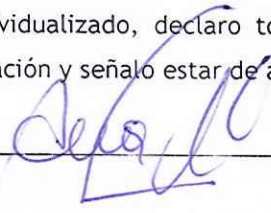 vidualizado, declaro to
ación y señalo estar de a